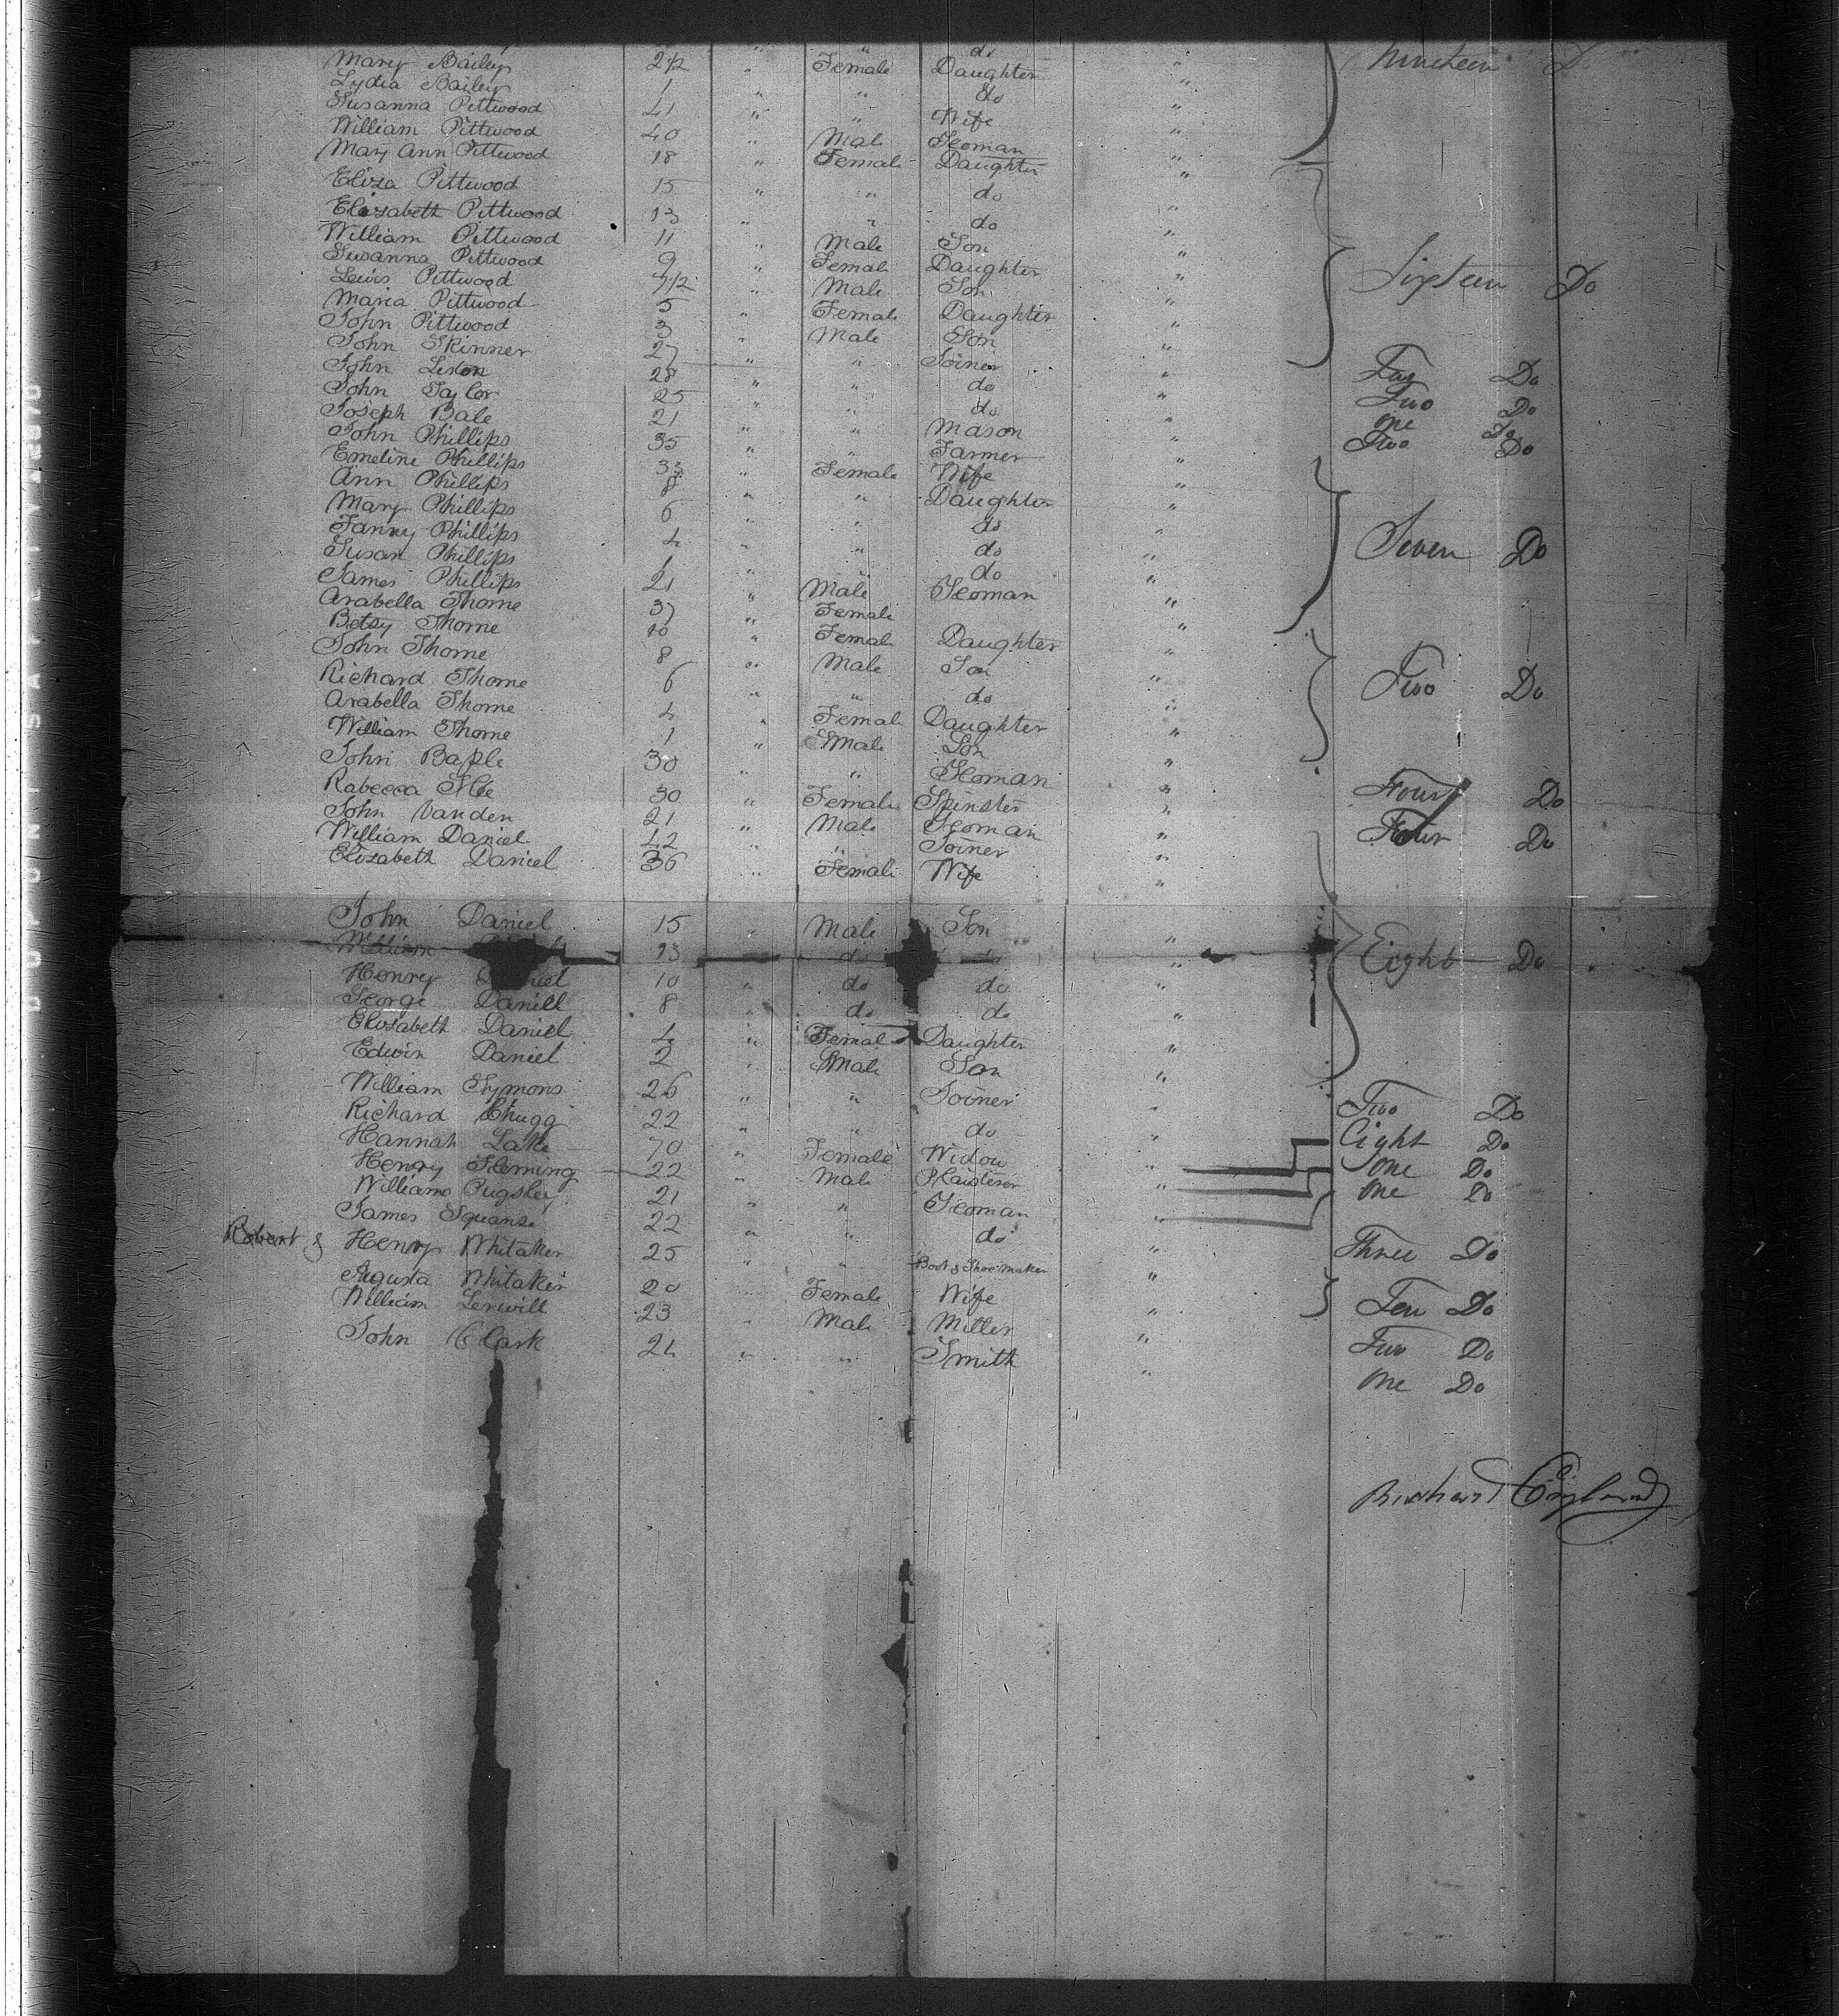 " " do
Mary Bailey 2 1/2 " Female Daughter " Nineteen Do
Lydia Bailey 1 " " do "
Susanna Pittwood 41 " " Wife "
William Pittwood 40 " Male Yeoman "
Mary Ann Pittwood 18 " Female Daughter "
Eliza Pittwood 15 " " do "
Elizabeth Pittwood 13 " " do "
William Pittwood 11 " Male Son "
Susanna Pittwood 9 " Female Daughter " Sixteen Do
Lewis Pittwood 7 1/2 " Male Son "
Maria Pittwood 5 " Female Daughter "
John Pittwood 3 " Male Son "
John Skinner 27 " " Joiner " Do
John 28 " " do " Two Do
John Taylor 25 " " do " One Do
Joseph Bale 21 " " Mason " Two Do
John Phillips 35 " " Farmer "
Emeline Phillips 33 " Female Wife "
Ann Phillips 8 " " Daughter "
Mary Phillips 6 " " do "
Fanny Phillips 4 " " do " Seven Do
Susan Phillips 1 " " do "
James Phillips 21 " Male Yeoman "
Arabella Thorne 37 " Female "
Betsy Thorne 10 " Female Daughter "
John Thorne 8 " Male Son "
Richard Thorne 6 " " do " Two Do
Arabella Thorne 4 " Female Daughter "
William Thorne 1 " Male Son "
John Baple 30 " " Yeoman "
Rabecca 30 " Female Spinster " Four Do
John Vanden 21 " Male Yeoman " Four Do
William Daniel 42 " " Joiner "
Elizabeth Daniel 36 " Female Wife "
John Daniel 15 " Male Son "
William 13 do do " Eight Do
Henry Daniel 10 " do do "
George Daniel 8 " do do "
Elizabeth Daniel 4 " Female Daughter "
Edwin Daniel 2 " Male Son "
William Symons 26 " " Joiner " Two Do
Richard Chugg 22 " " do " Eight Do
Hannah Lake 70 " Female Widow " One Do
Henry Fleming 22 " Male Plaisterer " One Do
William Pugsley 21 " " Yeoman "
James Squance 22 " " do " Three Do
Robert & Henry Whitaker 25 " " Boot & Shoe maker "
Augusta Whitaker 20 " Female Wife " Ten Do
William Lerwill 23 " Male Miller " Two Do
John Clark 24 " " Smith " One Do
Richard England